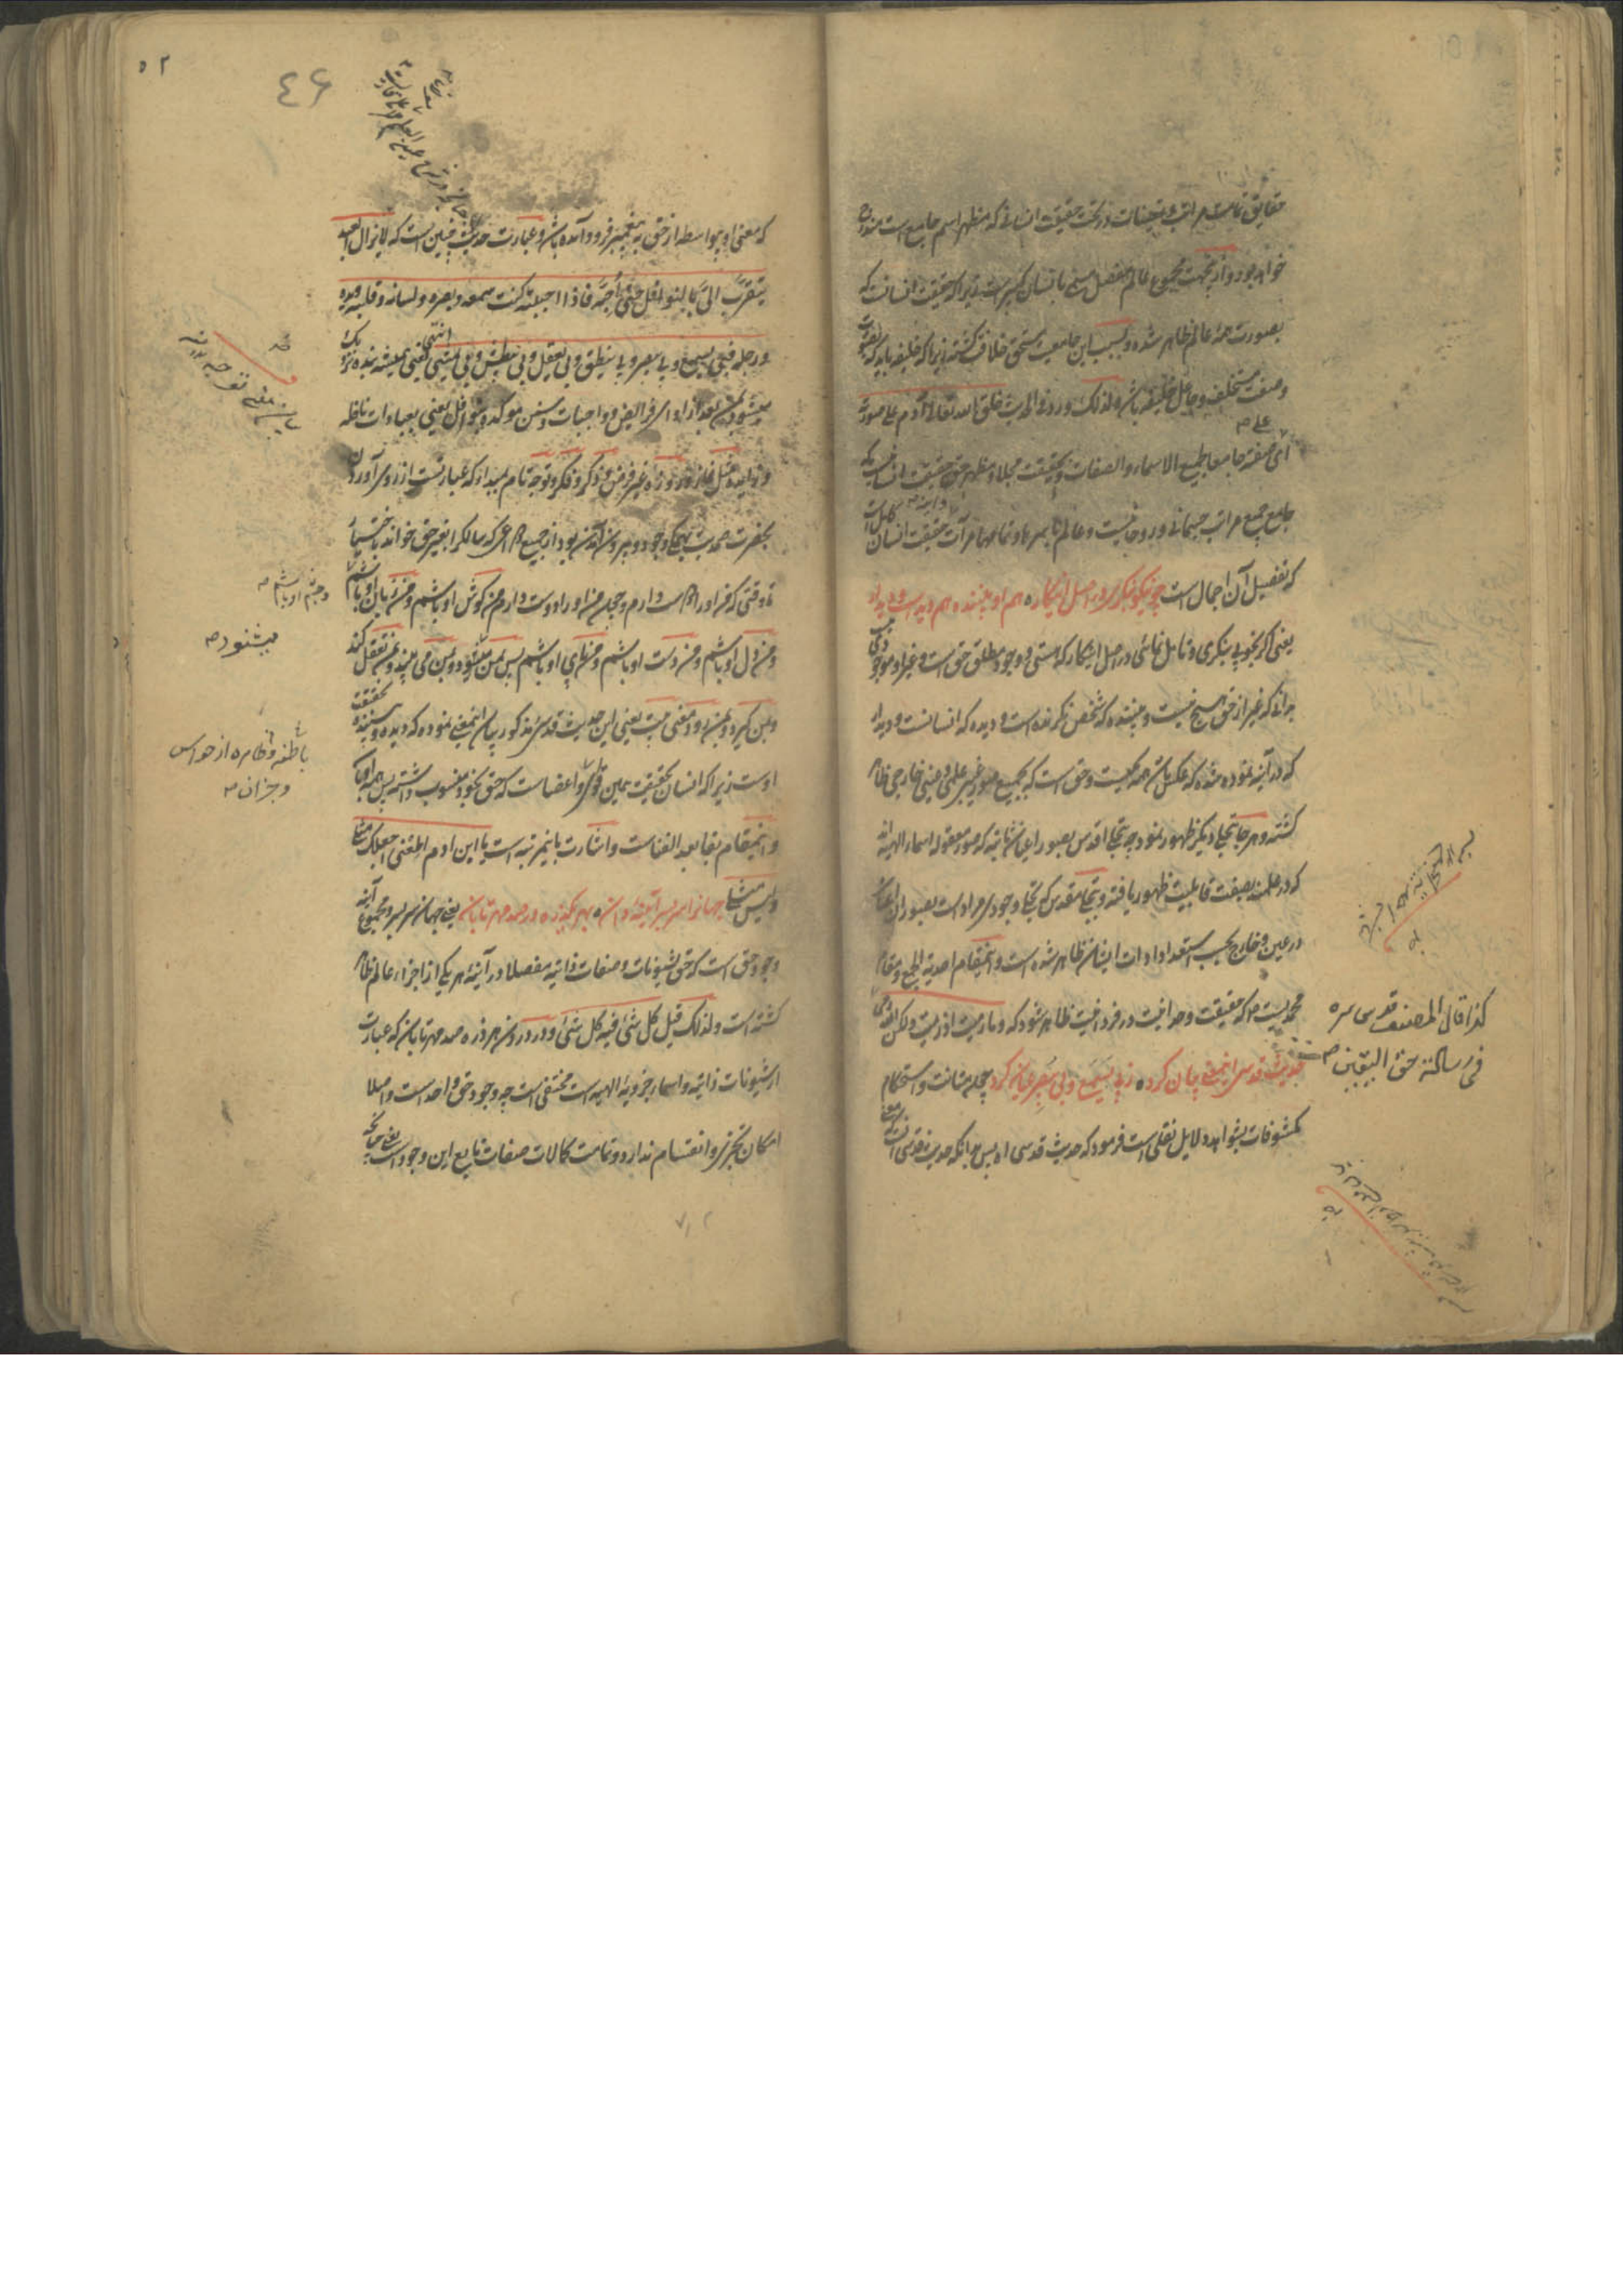 حقایق تمامت مراتب و تعینات در تحت حقیقت انسانی که مظهر اسم جامع است مندرج
خواهد بود و ازینجهت مجموع عالم مفصل مسمی بانسان کبیر است زیرا که حقیقت انسانست که
بصورت همه عالم ظاهر شده و بسبب این جامعیت مستحق خلافت گشته زیرا که خلیفه باید که بصورت
و صفت مستخلف و جاعل خلیفه باشد و لذلک ورد فی الحدیث خلق الله تعالی آدم علی صورته
ای صفته جامعا لجمیع الاسماء و الصفات و بحقیقت مجلا و مظهر حق حقیقت انسانیست که
جامع جمیع مراتب جسمانی و روحانیست و عالم باسرها و تمامها مرآت حقیقت انسان کامل است
که تفصیل آن اجمال است چو نیکو بنگری در اصل اینکار ه هم او بیننده هم دیده است و دیدار
یعنی اگر بخوبی بنگری و تامل نمائی در اصل اینکار که هستی و وجود مطلق حق است و غیر او موجودی نیست
بدانی که غیر از حق هیچ نیست و بیننده که شخص نگرنده است و دیده که انسانست و دیدار
که در آینه نموده شده که عکس باشد همه یکیست و حق است که بجمیع صور غیبی علمی و عینی خارجی ظاهر
گشته و هر جا بتجلی دیگر ظهور نموده چه بتجلی اقدس بصور اعیان ثابته که صور معقوله اسماء الهیه اند
که در علمند بصفت قابلیت ظهور یافته و بتجلی مقدس که تجلی وجودی مراد است بصور آن اعیان
در عین و خارج بحسب استعدادات ایشان ظاهر شده است و اینمقام احدیة الجمع و مقام
محمدیست ص که حقیقت وحدانیت در فردانیت ظاهر شود که و ما رمیت اذ رمیت ولکن الله رمی
حدیث قدسی اینمعنی بیان کرد ه فبی یسمع و بی یبصر عیان کرد چه متانت و استحکام
مکشوفات بشواهد دلایل نقلی است فرمود که حدیث قدسی اه پس بدانکه حدیث قدسی آنست
کذا قال المصنف قدس سره
فی رسالته حق الیقین ص
٥٢
٤٦
که معنی او بواسطه از حق به پیغمبر فرود آمده باشد و عبارت حدیث چنین است که لا یزال العبد
یتقرب الی بالنوافل حتی أحبه فاذا احببته کنت سمعه و بصره و لسانه و قلبه و یده
و رجله فبی یسمع و بی یبصر و بی ینطق و بی یعقل و بی یبطش و بی یمشی انتهی یعنی همیشه بنده نزدیک
میشود بمن بعد از ادای فرایض و واجبات و سنن موکده بنوافل یعنی بعبادات نافله
و زایده مثل نماز و روزه غیر فرض و ذکر و فکر و توجه تام مبدا که عبارتست از روی آوردن
بحضرت صمدیت بهمگی وجود و بیرون آمدن بود از جمیع هر که سالک را بغیر حق خواند باختیار
تا وقتی که من او را دوست دارم و چون من او را دوست دارم من گوش او باشم و من زبان او باشم
و چشم او باشم ص
و من دل او باشم و من دست او باشم و من پای او باشم پس بمن میشنود و بمن می بیند و بمن تعقل کند
میشنود ص
و بمن گیرد و بمن رود معنی بیت یعنی این حدیث قدسی مذکور بیان اینمعنی نموده که دیده و بیننده بحقیقت
اوست زیرا که انسان بحقیقت همین قوی و اعضاست که حق بخود منسوب داشته پس همه او باشد
باطنه و ظاهره از حواس
و جز آن ص
و اینمقام بقا بعد الفناست و اشارت باینمرتبه است یا ابن آدم اطعنی اجعلک مثلی
و لیس مثلی جهان را سر بسر آیینه دان ه بهر یکذره در صد مهر تابان یعنی جهان سربسر و مجموع آینه
وجود حق است که حق بشیونات و صفات ذاتیه مفصلا در آینه هر یکی از اجزاء عالم ظاهر
گشته است و لذلک قیل کل شیٔ فیه کل شیٔ و در درون هر ذره صد مهر تابان که عبارت
از شیونات ذاتیه و اسماء جزویه الهیه است مختفی است چه وجود حق واحد است و اصلا
امکان تجزی و انقسام ندارد و تمامت کمالات صفات تابع این وجود است یعنی هر جا که